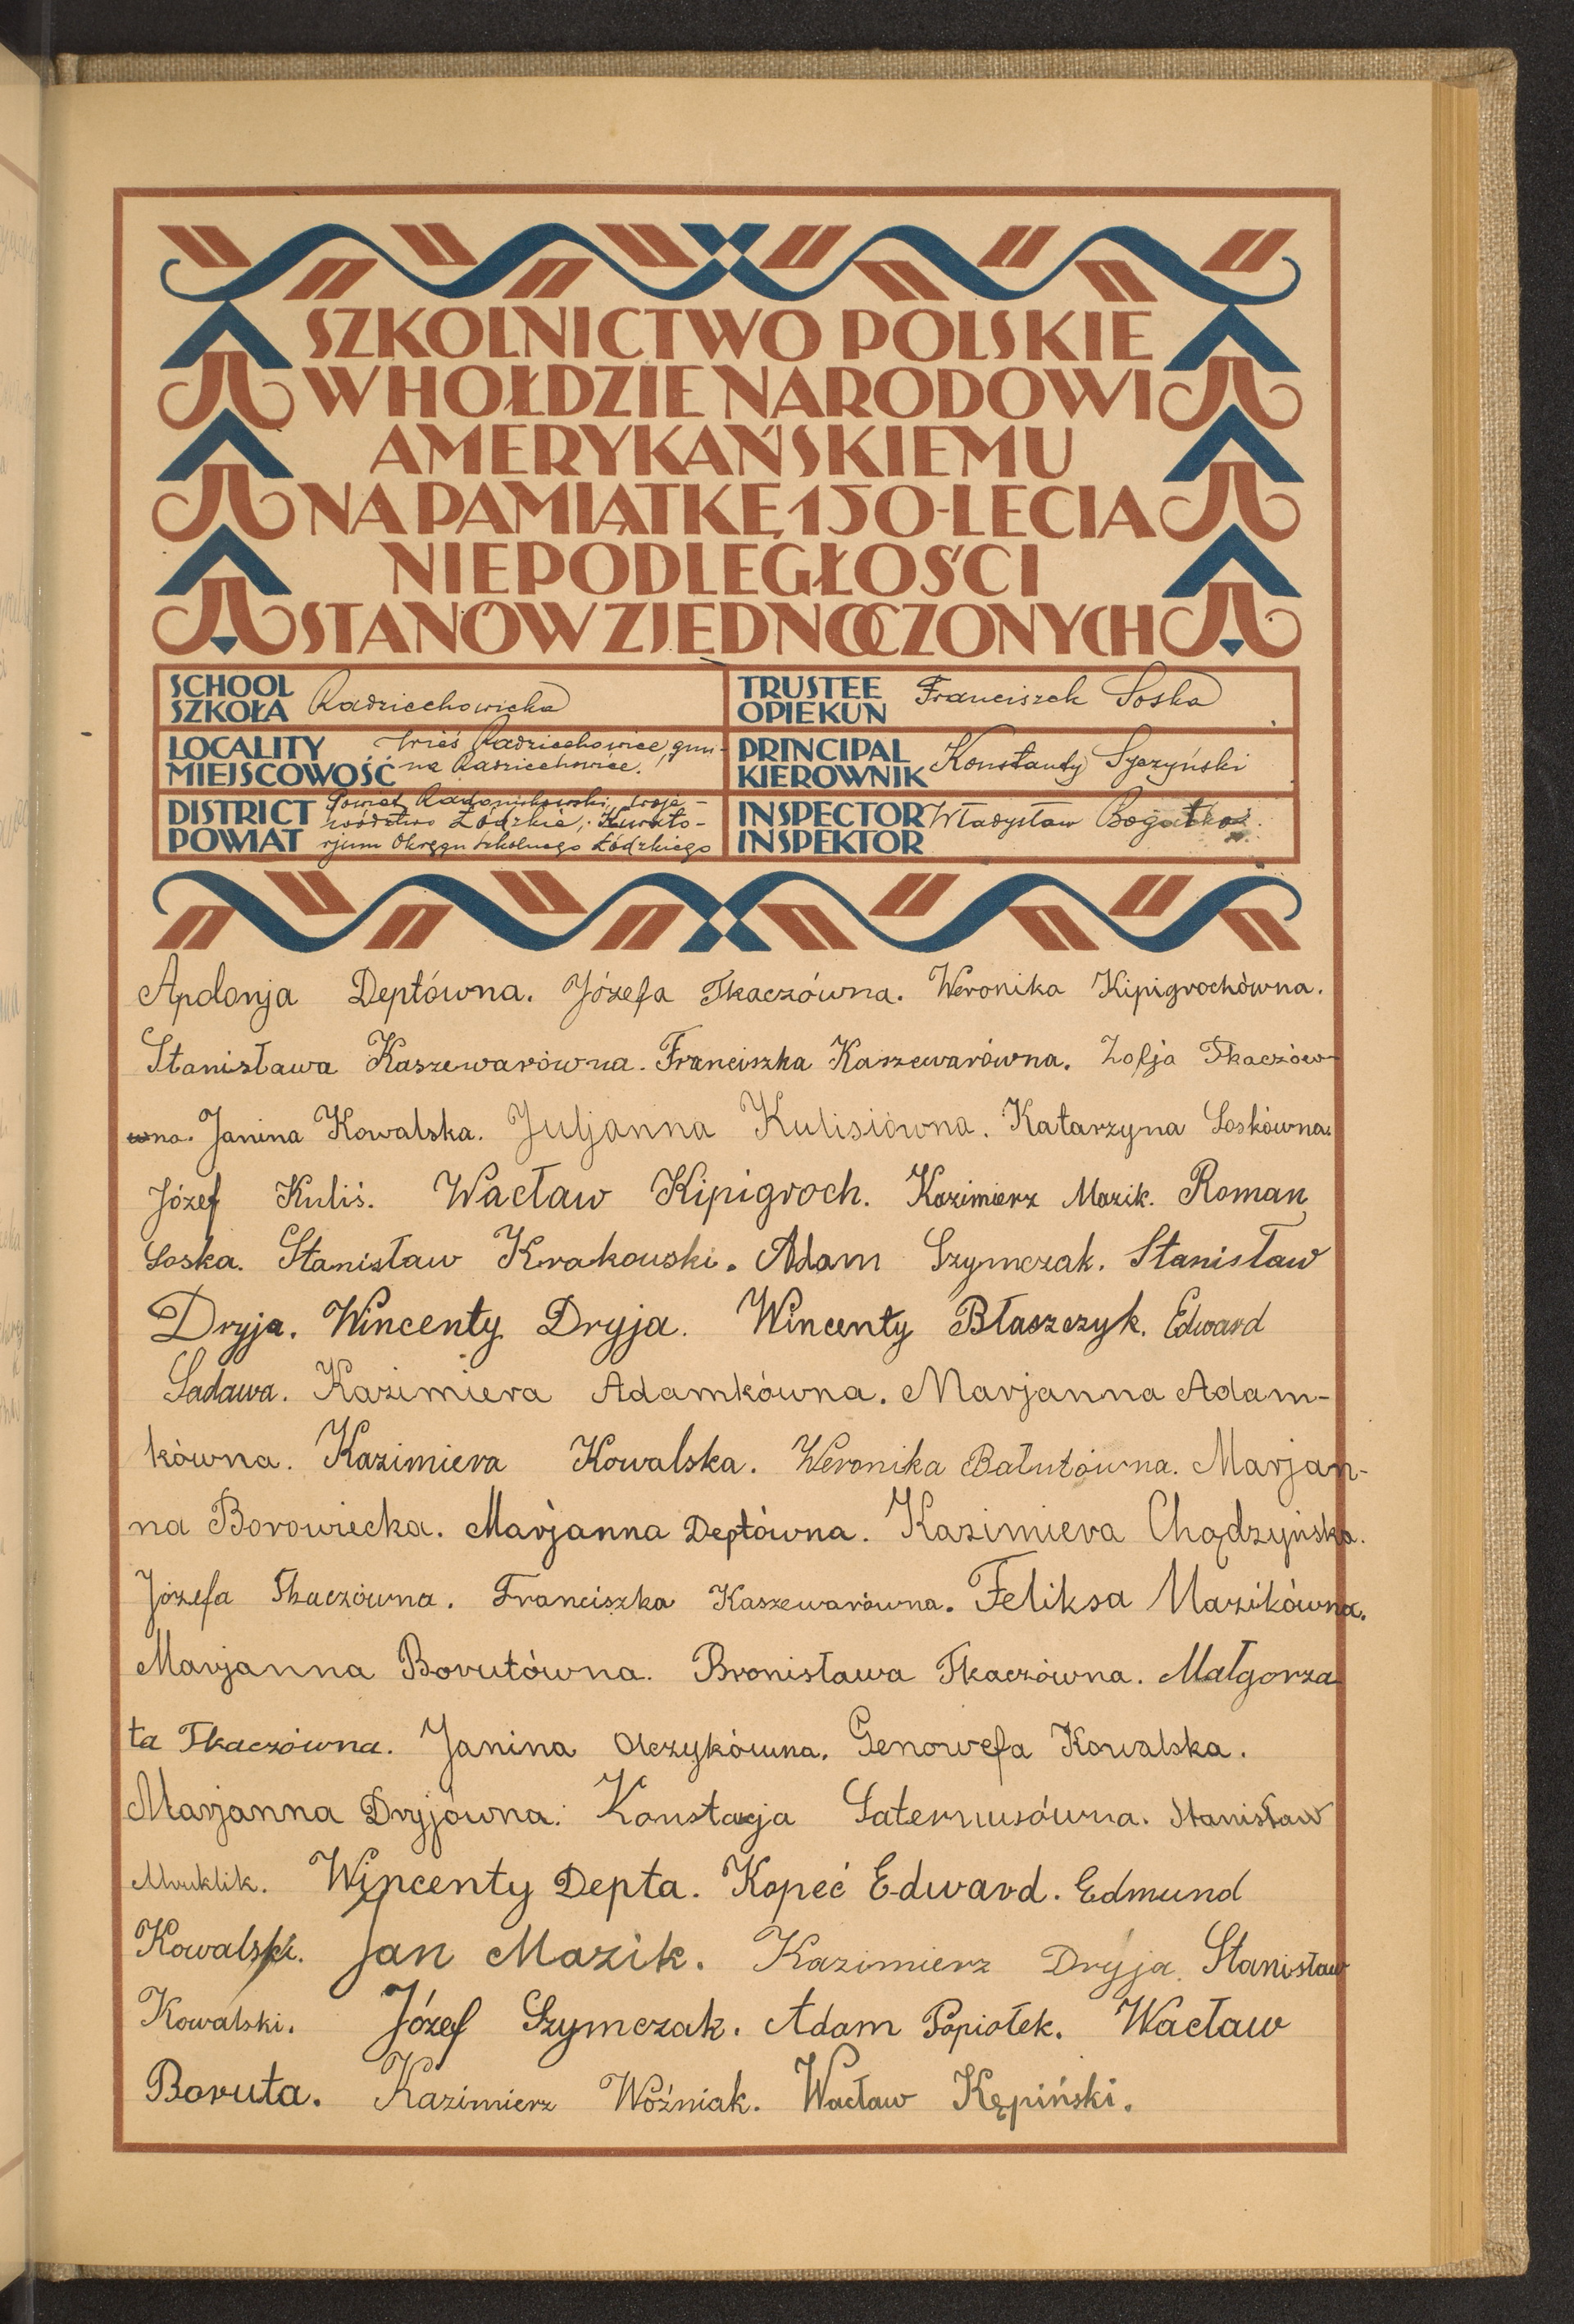 SZKOLNICTWO POLSKIE
W HOŁDZIE NARODOWI
AMERYKAŃSKIEMU
NA PAMIĄTKĘ 150-LECIA
NIEPODLEGŁOŚCI
STANÓW ZJEDNOCZONYCH
SCHOOL
SZKOŁA Radziechowicka
TRUSTEE
OPIEKUN Franciszek Soska
LOCALITY Wieś Radziechowice, gmi-
MIEJSCOWOŚĆ na Radziechowice.
PRINCIPAL
KIEROWNIK Konstanty Syczyński
DISTRICT Powiat Radomskowski, woje-
wództwo Łódzkie, Kurato-
POWIAT rjum Okręgu Szkolnego Łódzkiego
INSPECTOR Władysław
INSPEKTOR
Apolonja Deptówna. Józefa Tkaczówna. Weronika Kipigrochówna.
Stanisława Kaszewarówna. Franciszka Kaszewarówna. Zofja Tkaczów-
wna. Janina Kowalska. Juljanna Kulisiówna. Katarzyna Soskówna.
Józef Kuliś. Wacław Kipigroch. Kazimierz Mazik. Roman
Soska. Stanisław Krakowski. Adam Szymczak. Stanisław
Dryja. Wincenty Dryja. Wincenty Błaszczyk. Edward
Sadawa. Kazimiera Adamkówna. Marjanna Adam-
kówna. Kazimiera Kowalska. Weronika Bałutówna. Marjan-
na Borowiecka. Marjanna Deptówna. Kazimiera Chądzyńska.
Józefa Tkaczówna. Franciszka Kaszewarówna. Feliksa Mazikówna.
Marjanna Borutówna. Bronisława Tkaczówna. Małgorza
ta Tkaczówna. Janina Olczykówna. Genowefa Kowalska.
Marjanna Dryjówna. Konstacja Saternusówna. Stanisław
Mruklik. Wincenty Depta. Kopeć Edward. Edmund
Kowalski. Jan Mazik. Kazimierz Dryja. Stanisław
Kowalski. Józef Szymczak. Adam Popiołek. Wacław
Boruta. Kazimierz Woźniak. Wacław Kępiński.